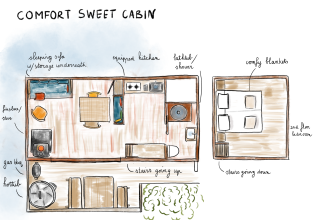 COMFORT SWEET CABIN
sleeping sofa
w/storage underneath
equipped kitchen
toilet/
shower
comfy blankets
stove
gas bbq
hottub
stairs going up
stairs going down
2nd floor